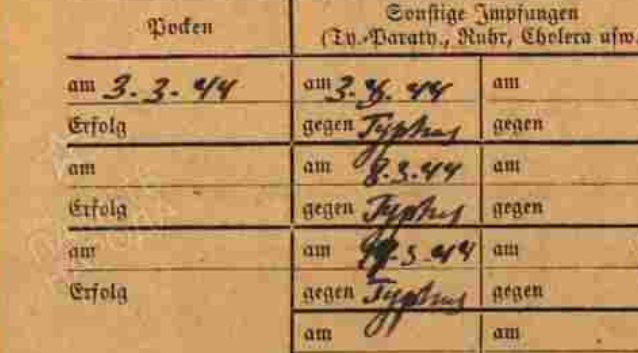 Pocken Sonstige Impfungen
(Ty.-Paraty., Ruhr, Cholera usw.
am 3.3.44 am 3.3.44 am
Erfolg gegen Typhus gegen
am am 8.3.44 am
Erfolg gegen Typhus gegen
am am .3.44 am
Erfolg gegen Typhus gegen
am am